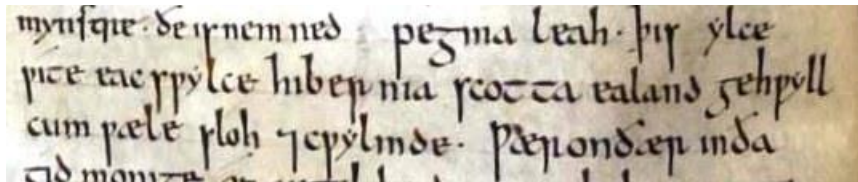 mynstre · ðe is nemned pegma leah · þis ylce
ƿite eac sƿylce hibernia scotta ealand gehƿyll
cum ƿæle sloh ⁊ cƿylmde · Ƿæron ðær in ða
tid monige